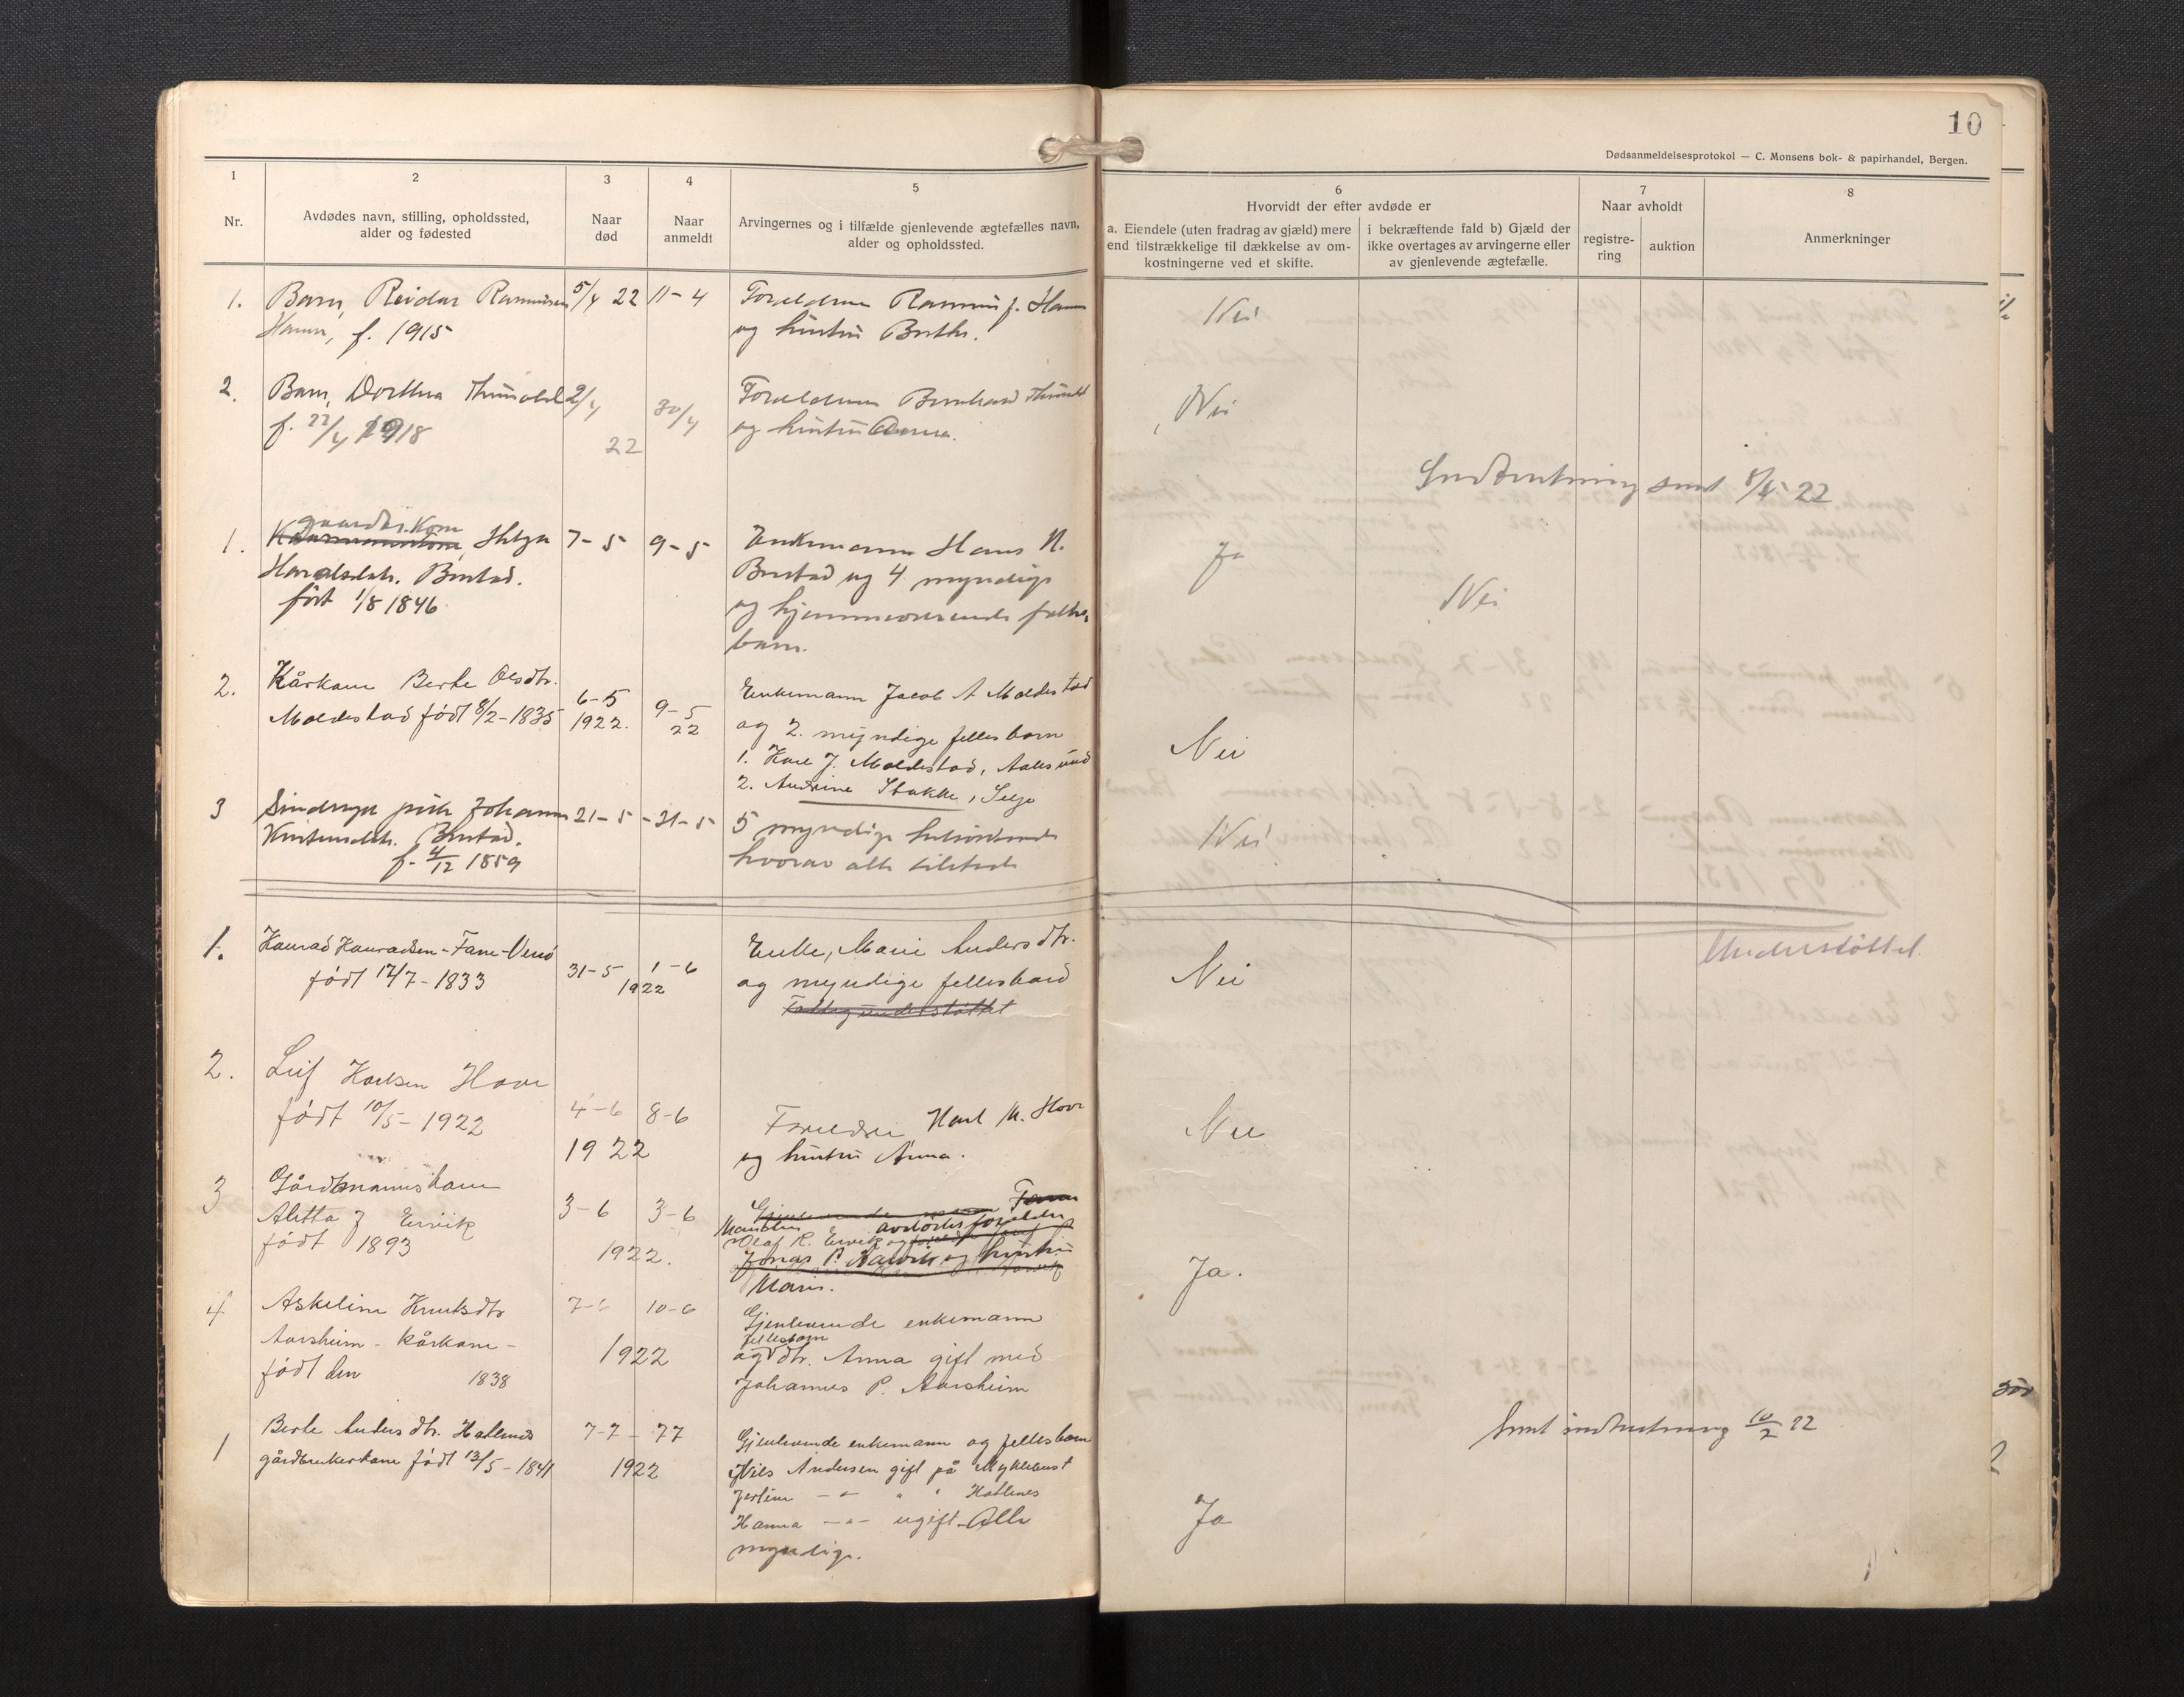 10
Dødsanmeldelsesprotokol — C. Monsens bok- & papirhandel, Bergen.
1
Nr.
2
Avdødes navn, stilling, opholdssted,
alder og fødested
3
Naar
død
4
Naar
anmeldt
5
Arvingernes og i tilfælde gjenlevende ægtefælles navn,
alder og opholdssted.
6
Hvorvidt der efter avdøde er
a. Eiendele (uten fradrag av gjæld) mere
end tilstrækkelige til dækkelse av om-
kostningerne ved et skifte.
i bekræftende fald b) Gjæld der
ikke overtages av arvingerne eller
av gjenlevende ægtefælle.
7
Naar avholdt
registre-
ring
auktion
8
Anmerkninger
1. Barn, Reidar Rasmussen 5/4 22 11-4 Forældrene Rasmus J. Hamn Nei
Hamn, f. 1915 og hustru Berthe.
2. Barn, Dorthea 2/4 30/4 Forældrene Bernhard Nei
f. 22/4 1918 22 og hustru Anna.
Indberetning sent 8/5 22
gaardbr.kone
1. Helga 7-5 9-5 Enkemann Hans N. Ja
Haraldsdtr. Brestad. Brestad og 4 myndige Nei
født 1/8 1846 og hjemmeværende felles
barn.
2. Kårkone Berte Olsdtr. 6-5 9-5 Enkemann Jacob A Moldestad
Moldestad født 8/2-1835 1922. 22 og 2 myndige felles barn Nei
1. Karl J. Moldestad, Aalesund
2. Andrine Stokke, Selje
3 Sindssyk pike Johanna 21-5 -31-5 5 myndige Nei
Brestad. hvorav alle tilstede
f. 4/12 1859
Understøttet.
1. Konrad Konradsen-Fane-Venø 31-5 1-6 Enke, Marie Andersdtr. Nei
født 17/7-1833 1922 og myndige fellesbarn
Fattigunderstøttet
2. Leif Karlsen Hove
født 10/5-1922 4-6 8-6 Forældre Karl M. Hove Nei
1922 og hustru Anna.
3 Gårdmannskone
Alitta J Ervik 3-6 3-6
født 1893 1922. avdødes forældre
Olaf R. Ervik og
Jonas P. og hustru Ja.
Maria.
4 Askeline Knutsdtr 7-6 10-6 Gjenlevende enkemann
fellesbarn
Aarsheim - kårkone - 1922 og dtr. Anna gift med
født den 1838 Johannes P. Aarsheim
1 Berte Andersdtr. Hatlenes 7-7 - 7 7 Gjenlevende enkemann og fellesbarn Sent indberetning 10/7 22
gårdbrukerkone født 13/5-1841 1922 Nils Andersen gift på Myklebust
Jertine - " - " " Hatlenes
Hanna - " - ugift. Alle Ja
myndige.